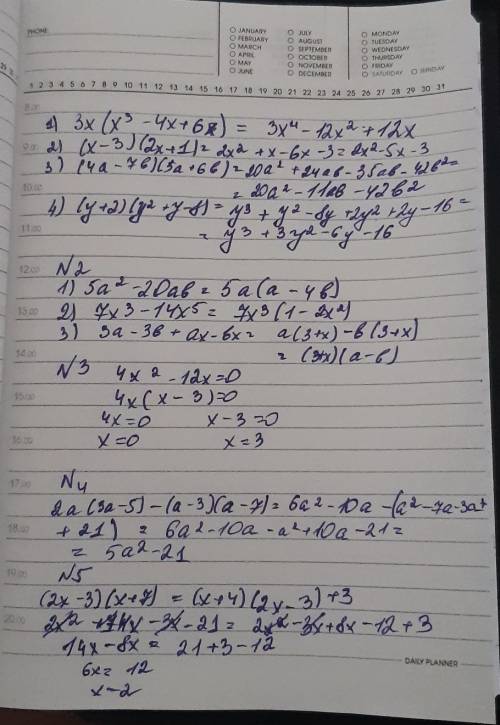 PHONE
JANUARY JULY MONDAY
FEBRUARY AUGUST TUESDAY
MARCH SEPTEMBER WEDNESDAY
APRIL OCTOBER THURSDAY
MAY NOVEMBER FRIDAY
JUNE DECEMBER SATURDAY SUNDAY
1 2 3 4 5 6 7 8 9 10 11 12 13 14 15 16 17 18 19 20 21 22 23 24 25 26 27 28 29 30 31
8.00
1) 3x(x³ - 4x + 6) = 3x⁴ - 12x² + 12x
9.00 2) (x-3)(2x+1) = 2x² + x - 6x - 3 = 2x² - 5x - 3
3) (4a - 7в)(5a + 6в) = 20a² + 24aв - 35aв - 42в² =
10.00 = 20a² - 11aв - 42в2
4) (y+2)(y² + y - 8) = y³ + y² - 8y + 2y² + 2y - 16 =
11.00 = y³ + 3y² - 6y - 16
12.00 N2
1) 5a² - 20aв = 5a(a - 4в)
13.00 2) 7x3 - 14x5 = 7x3(1 - 2x²)
3) 3a - 3в + ax - вx = a(3+x) - в(3+x)
14.00 = (3+x)(a-в)
N3 4x2 - 12x = 0
15.00 4x(x - 3) = 0
4x = 0 x - 3 = 0
16.00 x = 0 x = 3
17.00 N4
2a(3a-5) - (a-3)(a-7) = 6a² - 10a - (a² - 7a - 3a +
18.00 + 21) = 6a² - 10a - a² + 10a - 21 =
= 5a² - 21
19.00 N5
(2x-3)(x+7) = (x+4)(2x-3) + 3
20.00 2x2 + 14x - 3x - 21 = 2x2 - 3x + 8x - 12 + 3
14x - 8x = 21 + 3 - 12
6x = 12
x - 2
DAILY PLANNER